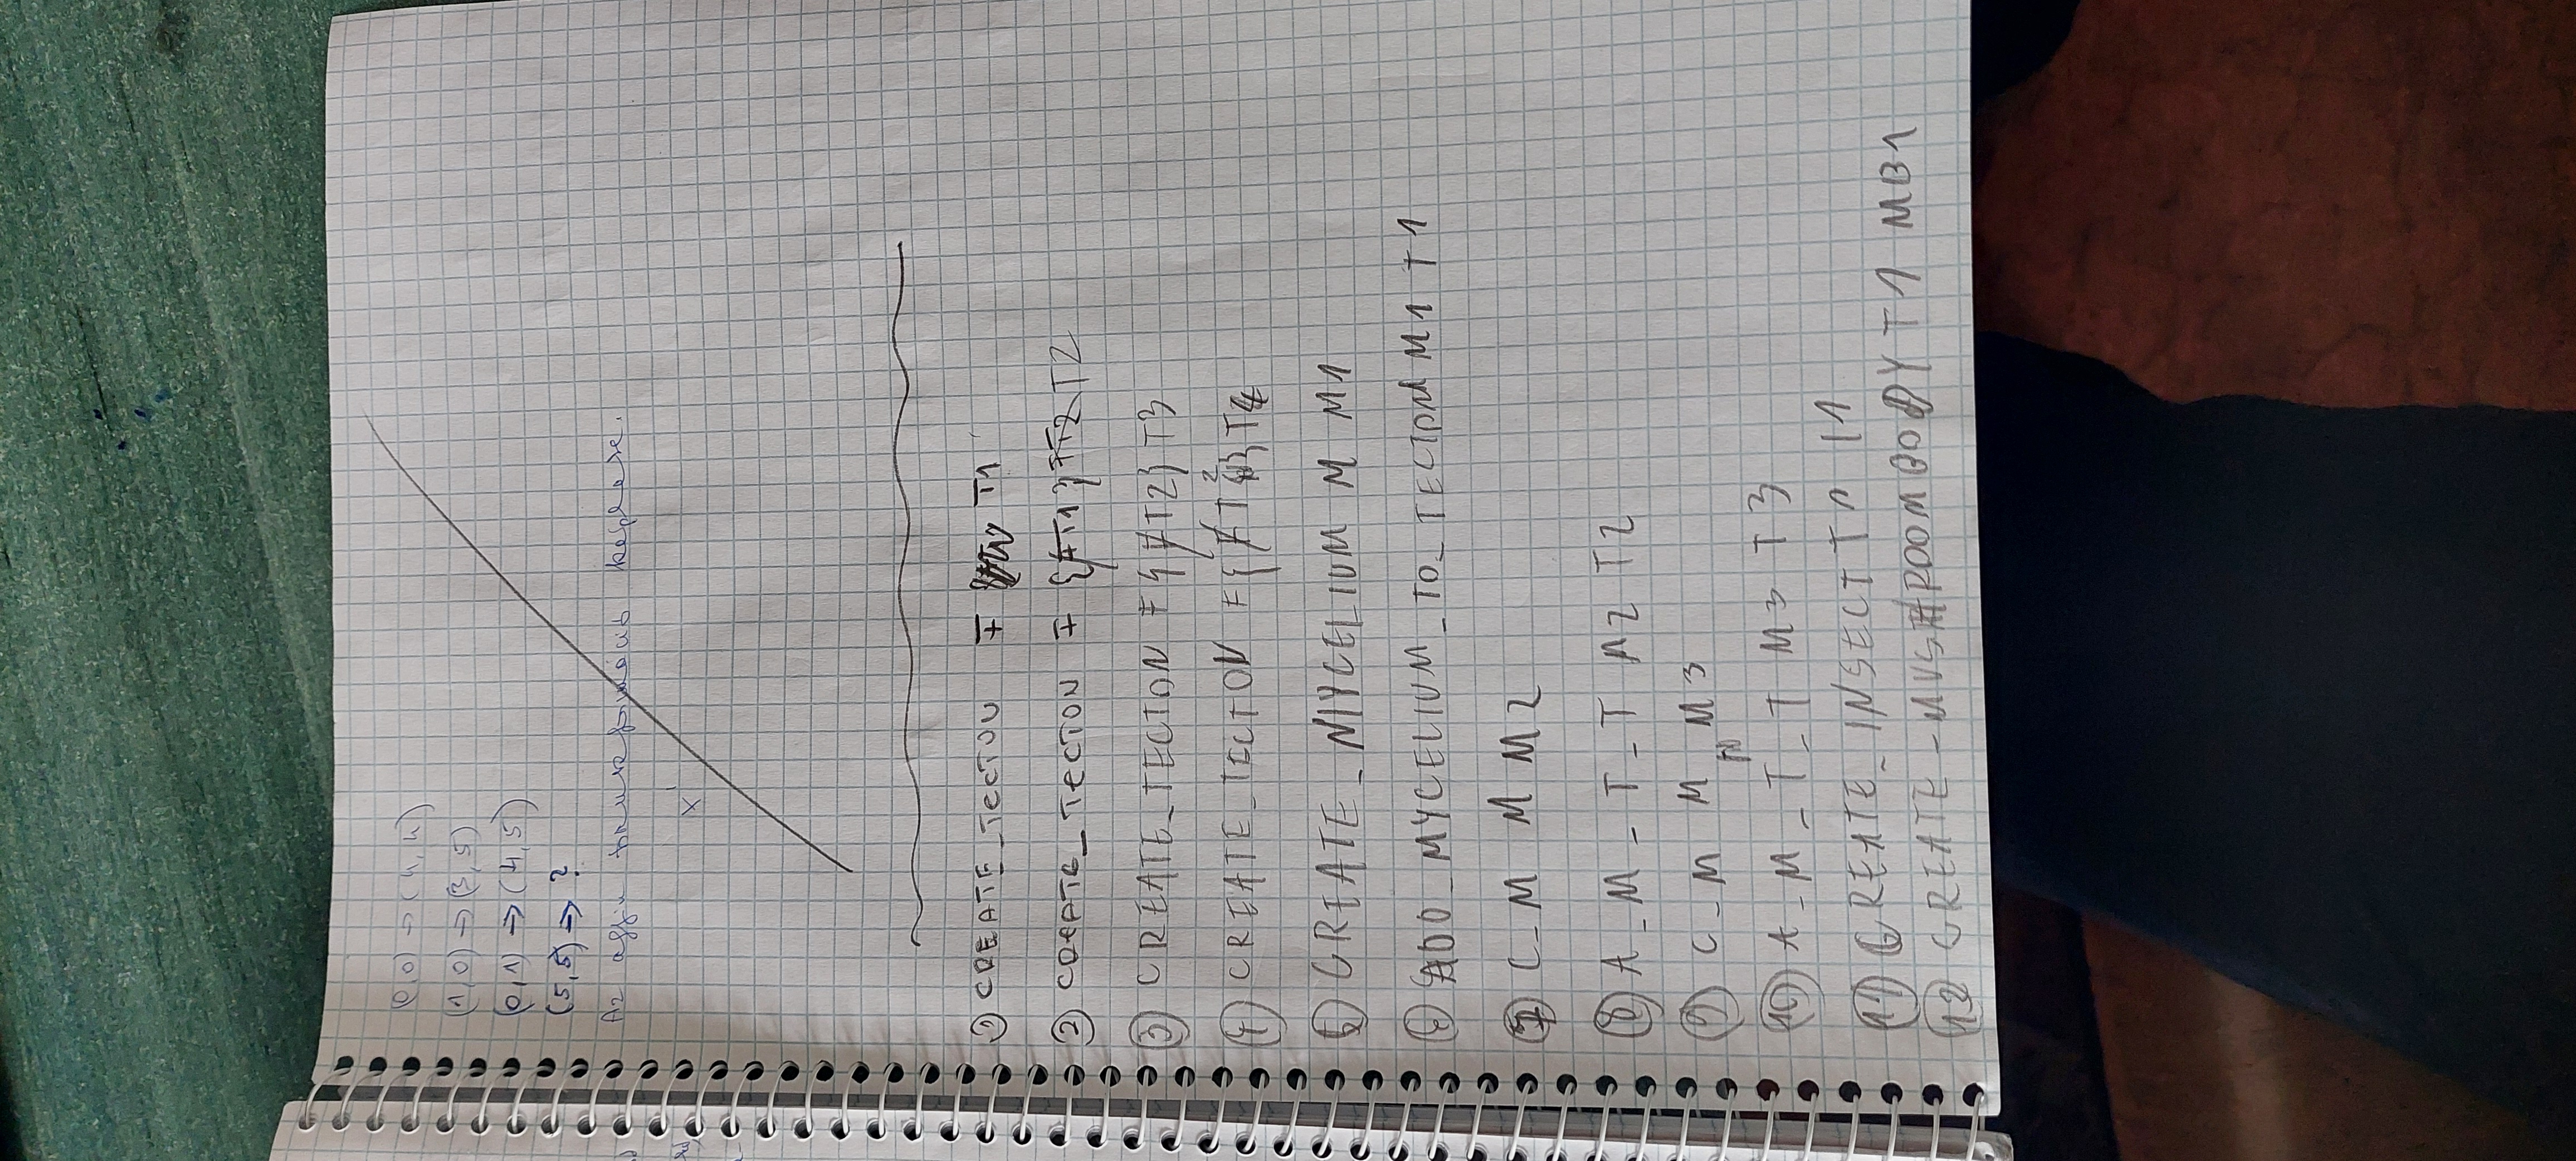 (0,0) → (4,4)
(1,0) → (3,5)
(0,1) → (4,5)
(5,5) → ?
Az affin
x
① CREATE_TECTON F T1
② CREATE_TECTON F {T1} T2
③ CREATE_TECTON F {T2} T3
④ CREATE_TECTON F {T2} T4
⑤ CREATE_MYCELIUM M M1
⑥ ADD_MYCELIUM_TO_TECTON M1 T1
⑦ C_M M M2
⑧ A_M_T_T M2 T2
⑨ C_M M M3
⑩ A_M_T_T M3 T3
⑪ CREATE_INSECT T1 I1
⑫ CREATE_MUSHROOMBODY T1 MB1